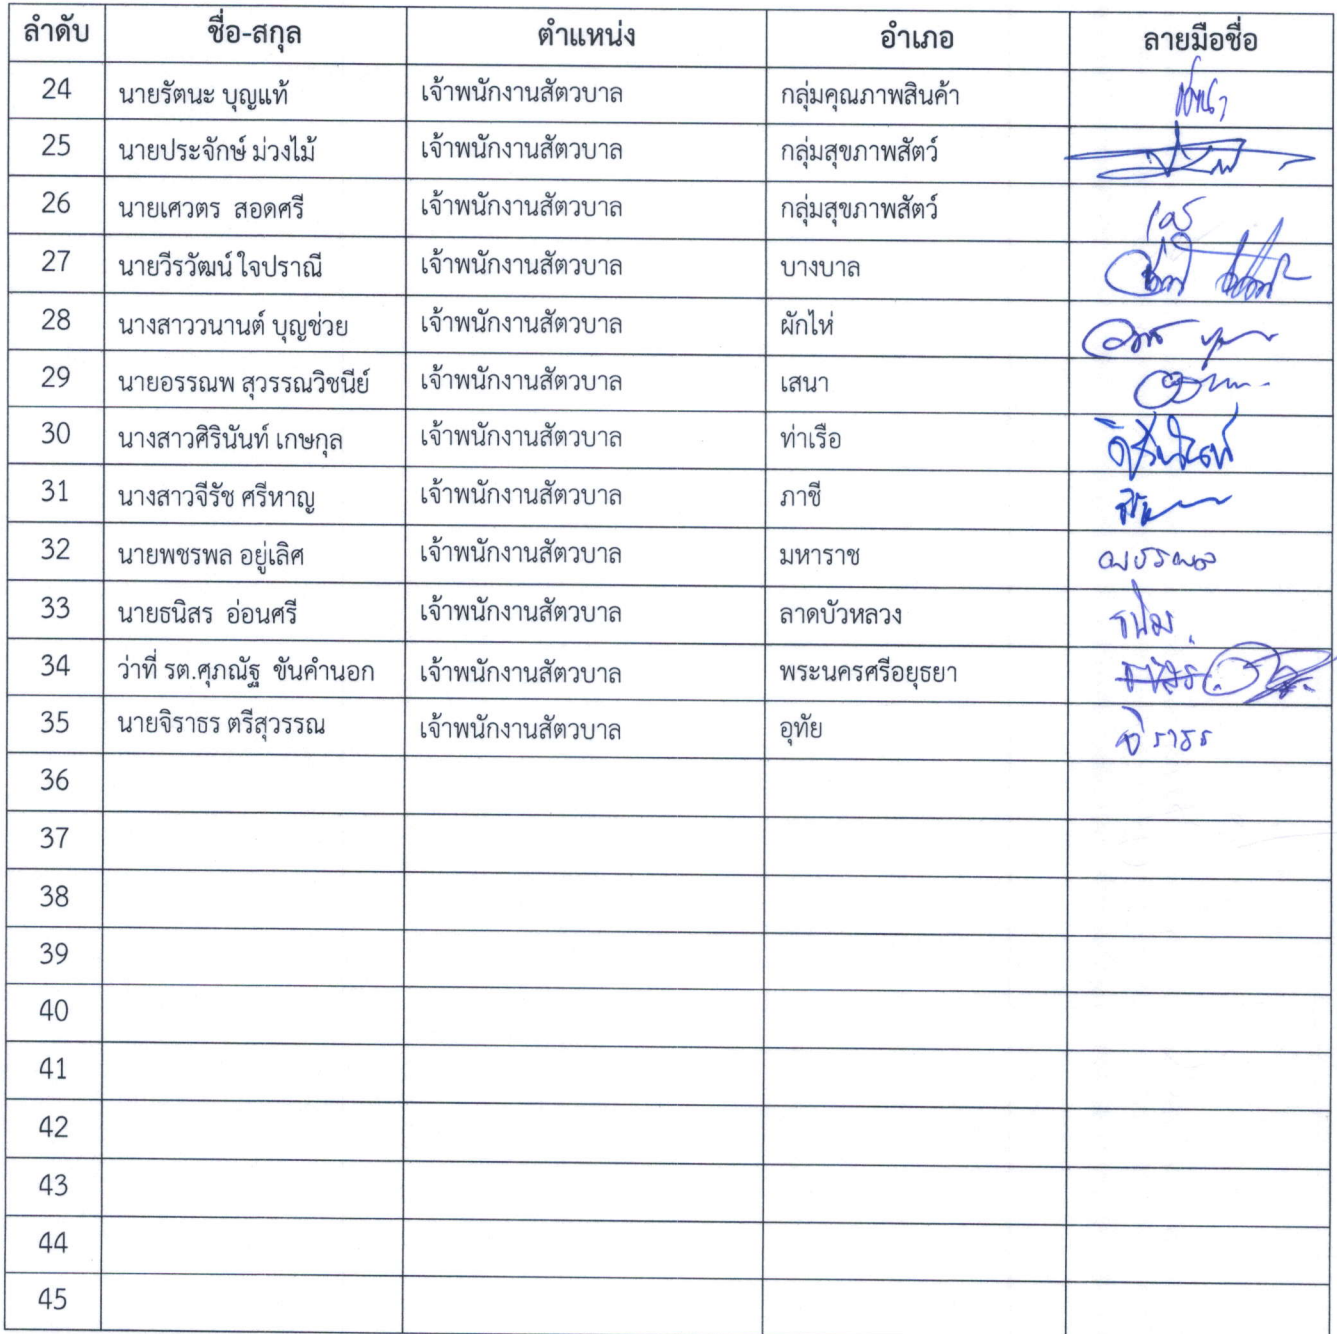 ลำดับ ชื่อ-สกุล ตำแหน่ง อำเภอ ลายมือชื่อ
24 นายรัตนะ บุญแท้ เจ้าพนักงานสัตวบาล กลุ่มคุณภาพสินค้า
25 นายประจักษ์ ม่วงไม้ เจ้าพนักงานสัตวบาล กลุ่มสุขภาพสัตว์
26 นายเศวตร สอดศรี เจ้าพนักงานสัตวบาล กลุ่มสุขภาพสัตว์
27 นายวีรวัฒน์ ใจปราณี เจ้าพนักงานสัตวบาล บางบาล
28 นางสาววนานต์ บุญช่วย เจ้าพนักงานสัตวบาล ผักไห่
29 นายอรรณพ สุวรรณวิชนีย์ เจ้าพนักงานสัตวบาล เสนา
30 นางสาวศิรินันท์ เกษกุล เจ้าพนักงานสัตวบาล ท่าเรือ
31 นางสาวจีรัช ศรีหาญ เจ้าพนักงานสัตวบาล ภาชี
32 นายพชรพล อยู่เลิศ เจ้าพนักงานสัตวบาล มหาราช พชรพล
33 นายธนิสร อ่อนศรี เจ้าพนักงานสัตวบาล ลาดบัวหลวง
34 ว่าที่ รต.ศุภณัฐ ขันคำนอก เจ้าพนักงานสัตวบาล พระนครศรีอยุธยา
35 นายจิราธร ตรีสุวรรณ เจ้าพนักงานสัตวบาล อุทัย จิราธร
36
37
38
39
40
41
42
43
44
45